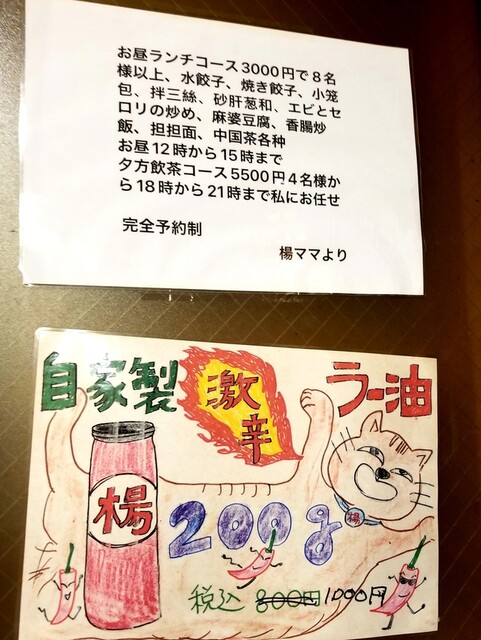 お昼ランチコース3000円で8名
様以上、水餃子、焼き餃子、小笼
包、拌三絲、砂肝葱和、エビとセ
ロリの炒め、麻婆豆腐、香腸炒
飯、担担面、中国茶各种
お昼12時から15時まで
夕方飲茶コース5500円4名様か
ら18時から21時まで私にお任せ
完全予約制
楊ママより
自家製 激辛 ラー油
楊
楊
200g
税込 800円 1000円